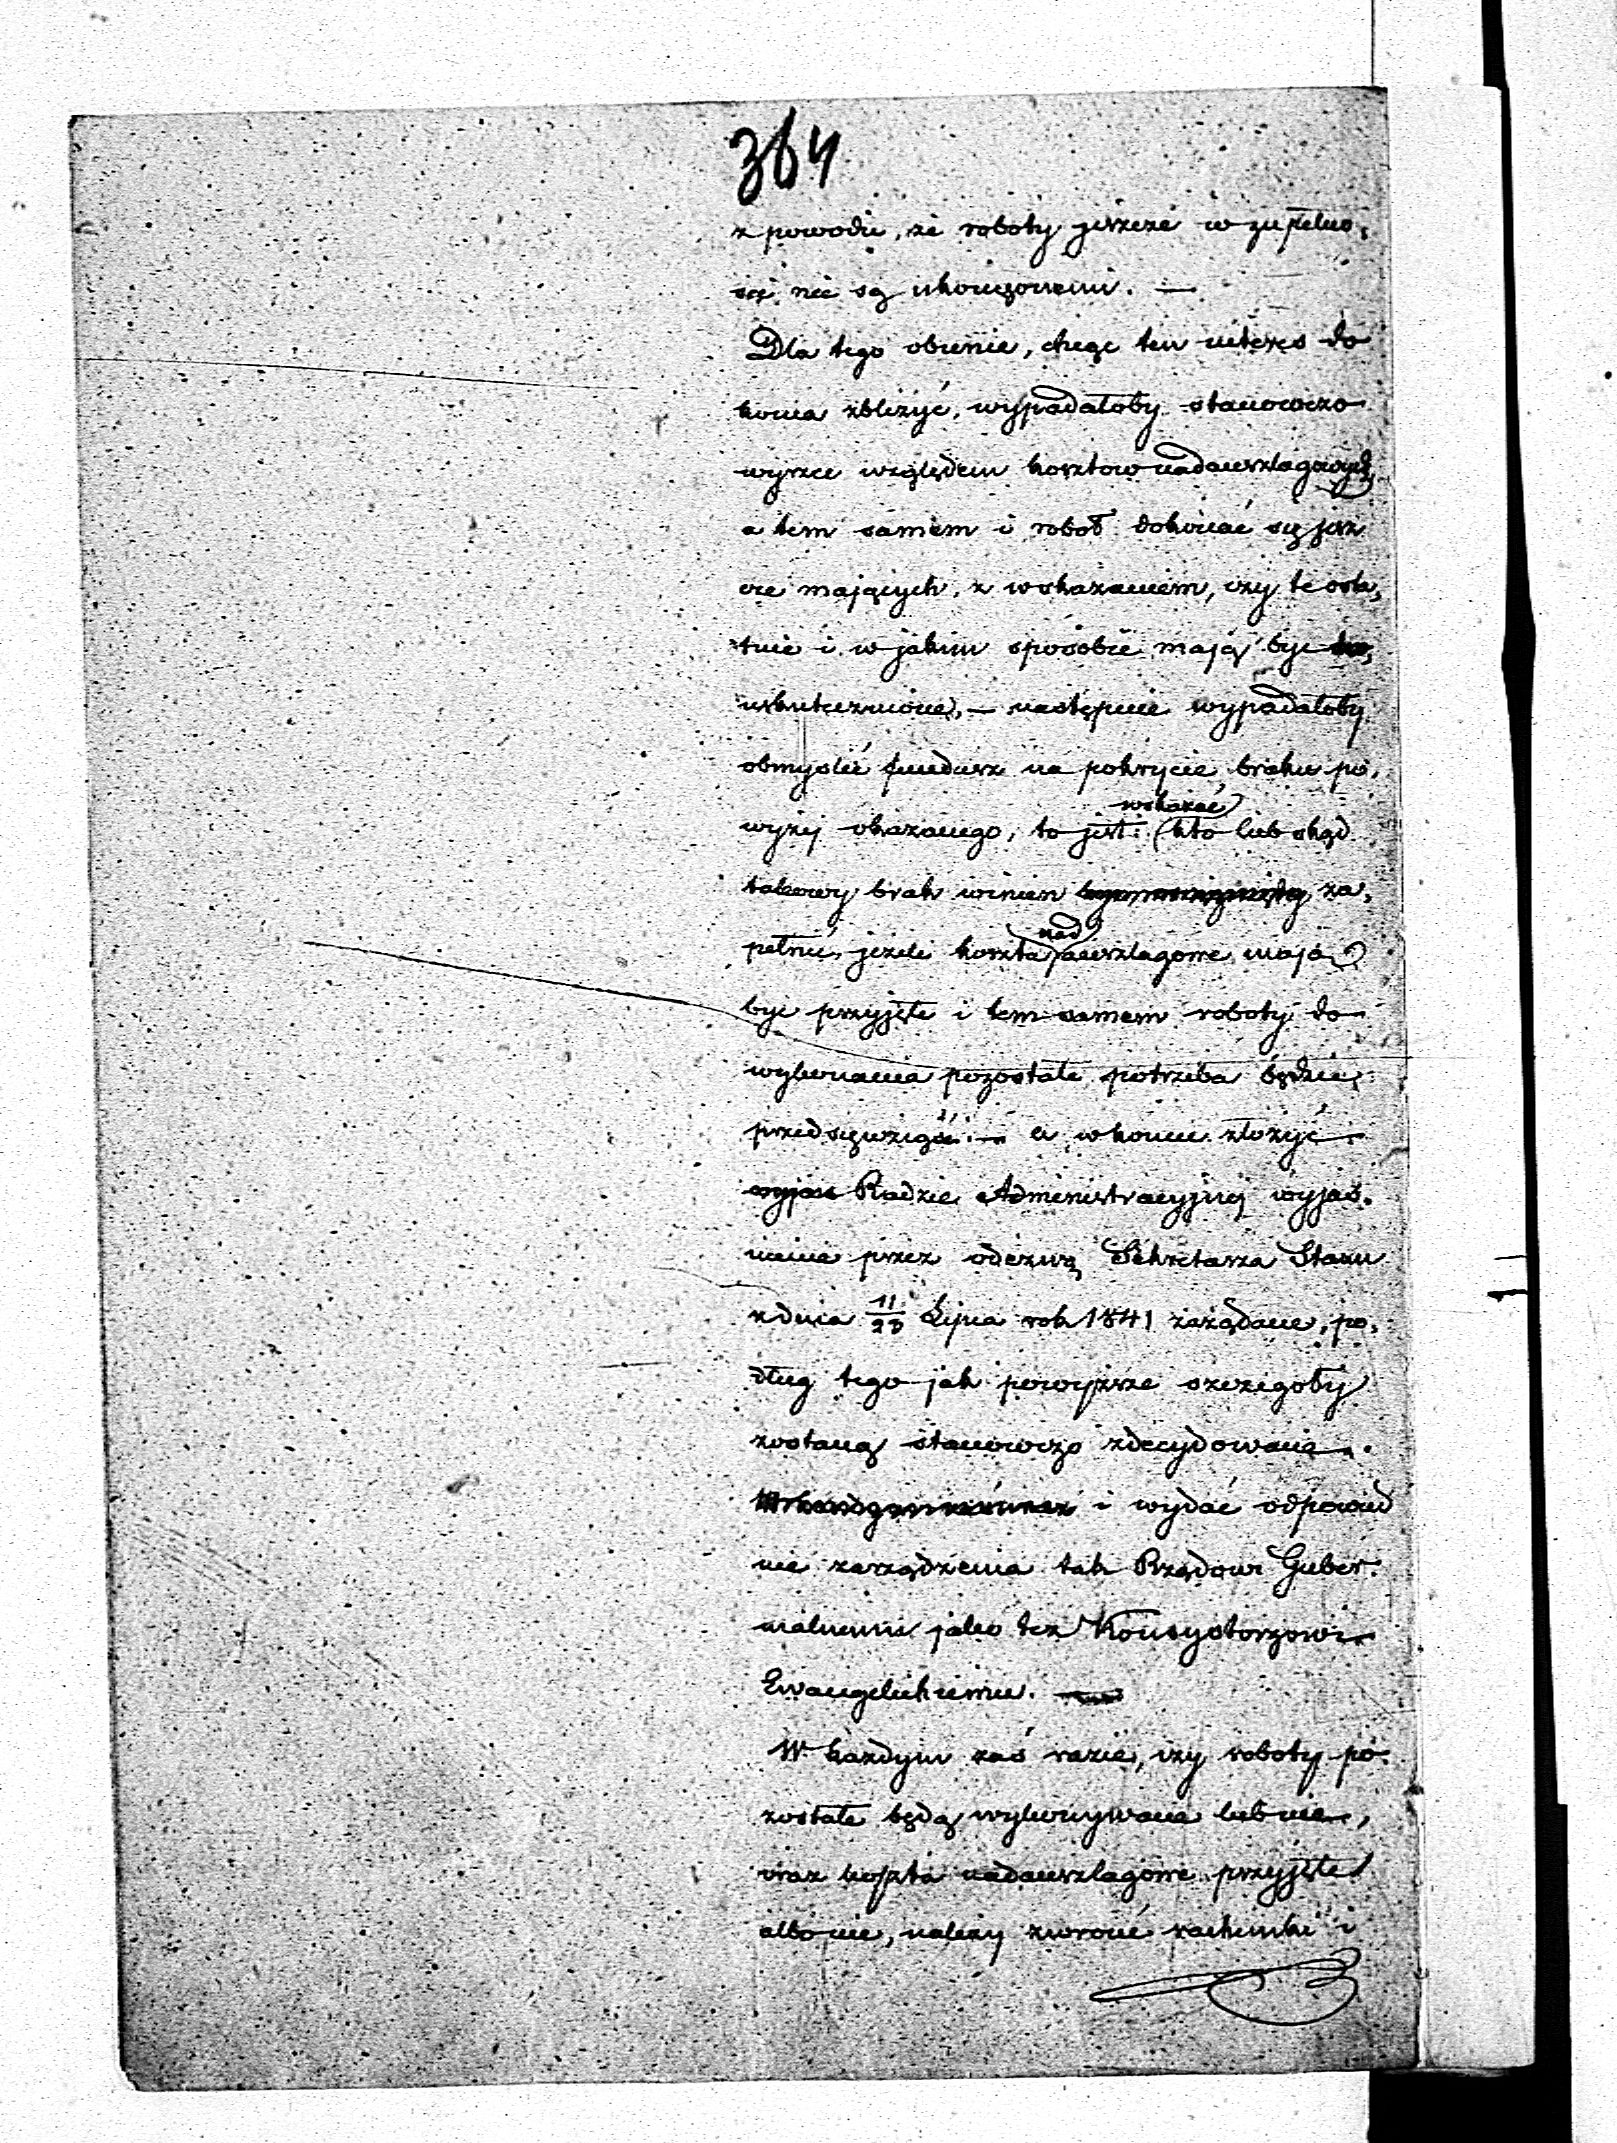 364
z powodu, że roboty jeszcze w zupełno,
ści nie są ukończonemi. —
Dla tego obecnie, chcąc ten interes do
końca zbliżyć, wypadałoby stanowczo
wyrzec względem kosztow nadanszlagowych,
a tem samem i robot dokonać się jesz
cze mających, z wskazaniem, czy te osta,
tnie i w jakim sposobie mają być
uskutecznione, — następnie wypadałoby
obmyślić fundusz na pokrycie braku po,
wyżej okazanego, to jest: wskazać kto lub skąd
takowy brak winien za,
pełnić, jeżeli koszta nadanszlagowe mają
być przyjęte i tem samem roboty do
wykonania pozostałe potrzeba będzie
przedsięwziąść. — a w końcu złożyć
Radzie Administracyjnej wyjaś,
nienie przez odezwę Sekretarza Stanu
z dnia 11/23 Lipca rok 1841 zażądane, po,
dług tego jak powyższe szczegoły
zostaną stanowczo zdecydowane.
i wydać odpowied
nie zarządzenia tak Rządowi Guber,
nialnemu jako też Konsystorzowi
Ewangelickiemu. —
W każdym zaś razie, czy roboty po,
zostałe będą wykonywane lub nie,
oraz koszta nadanszlagowe przyjęte
albo nie, należy zwrocić rachunki i